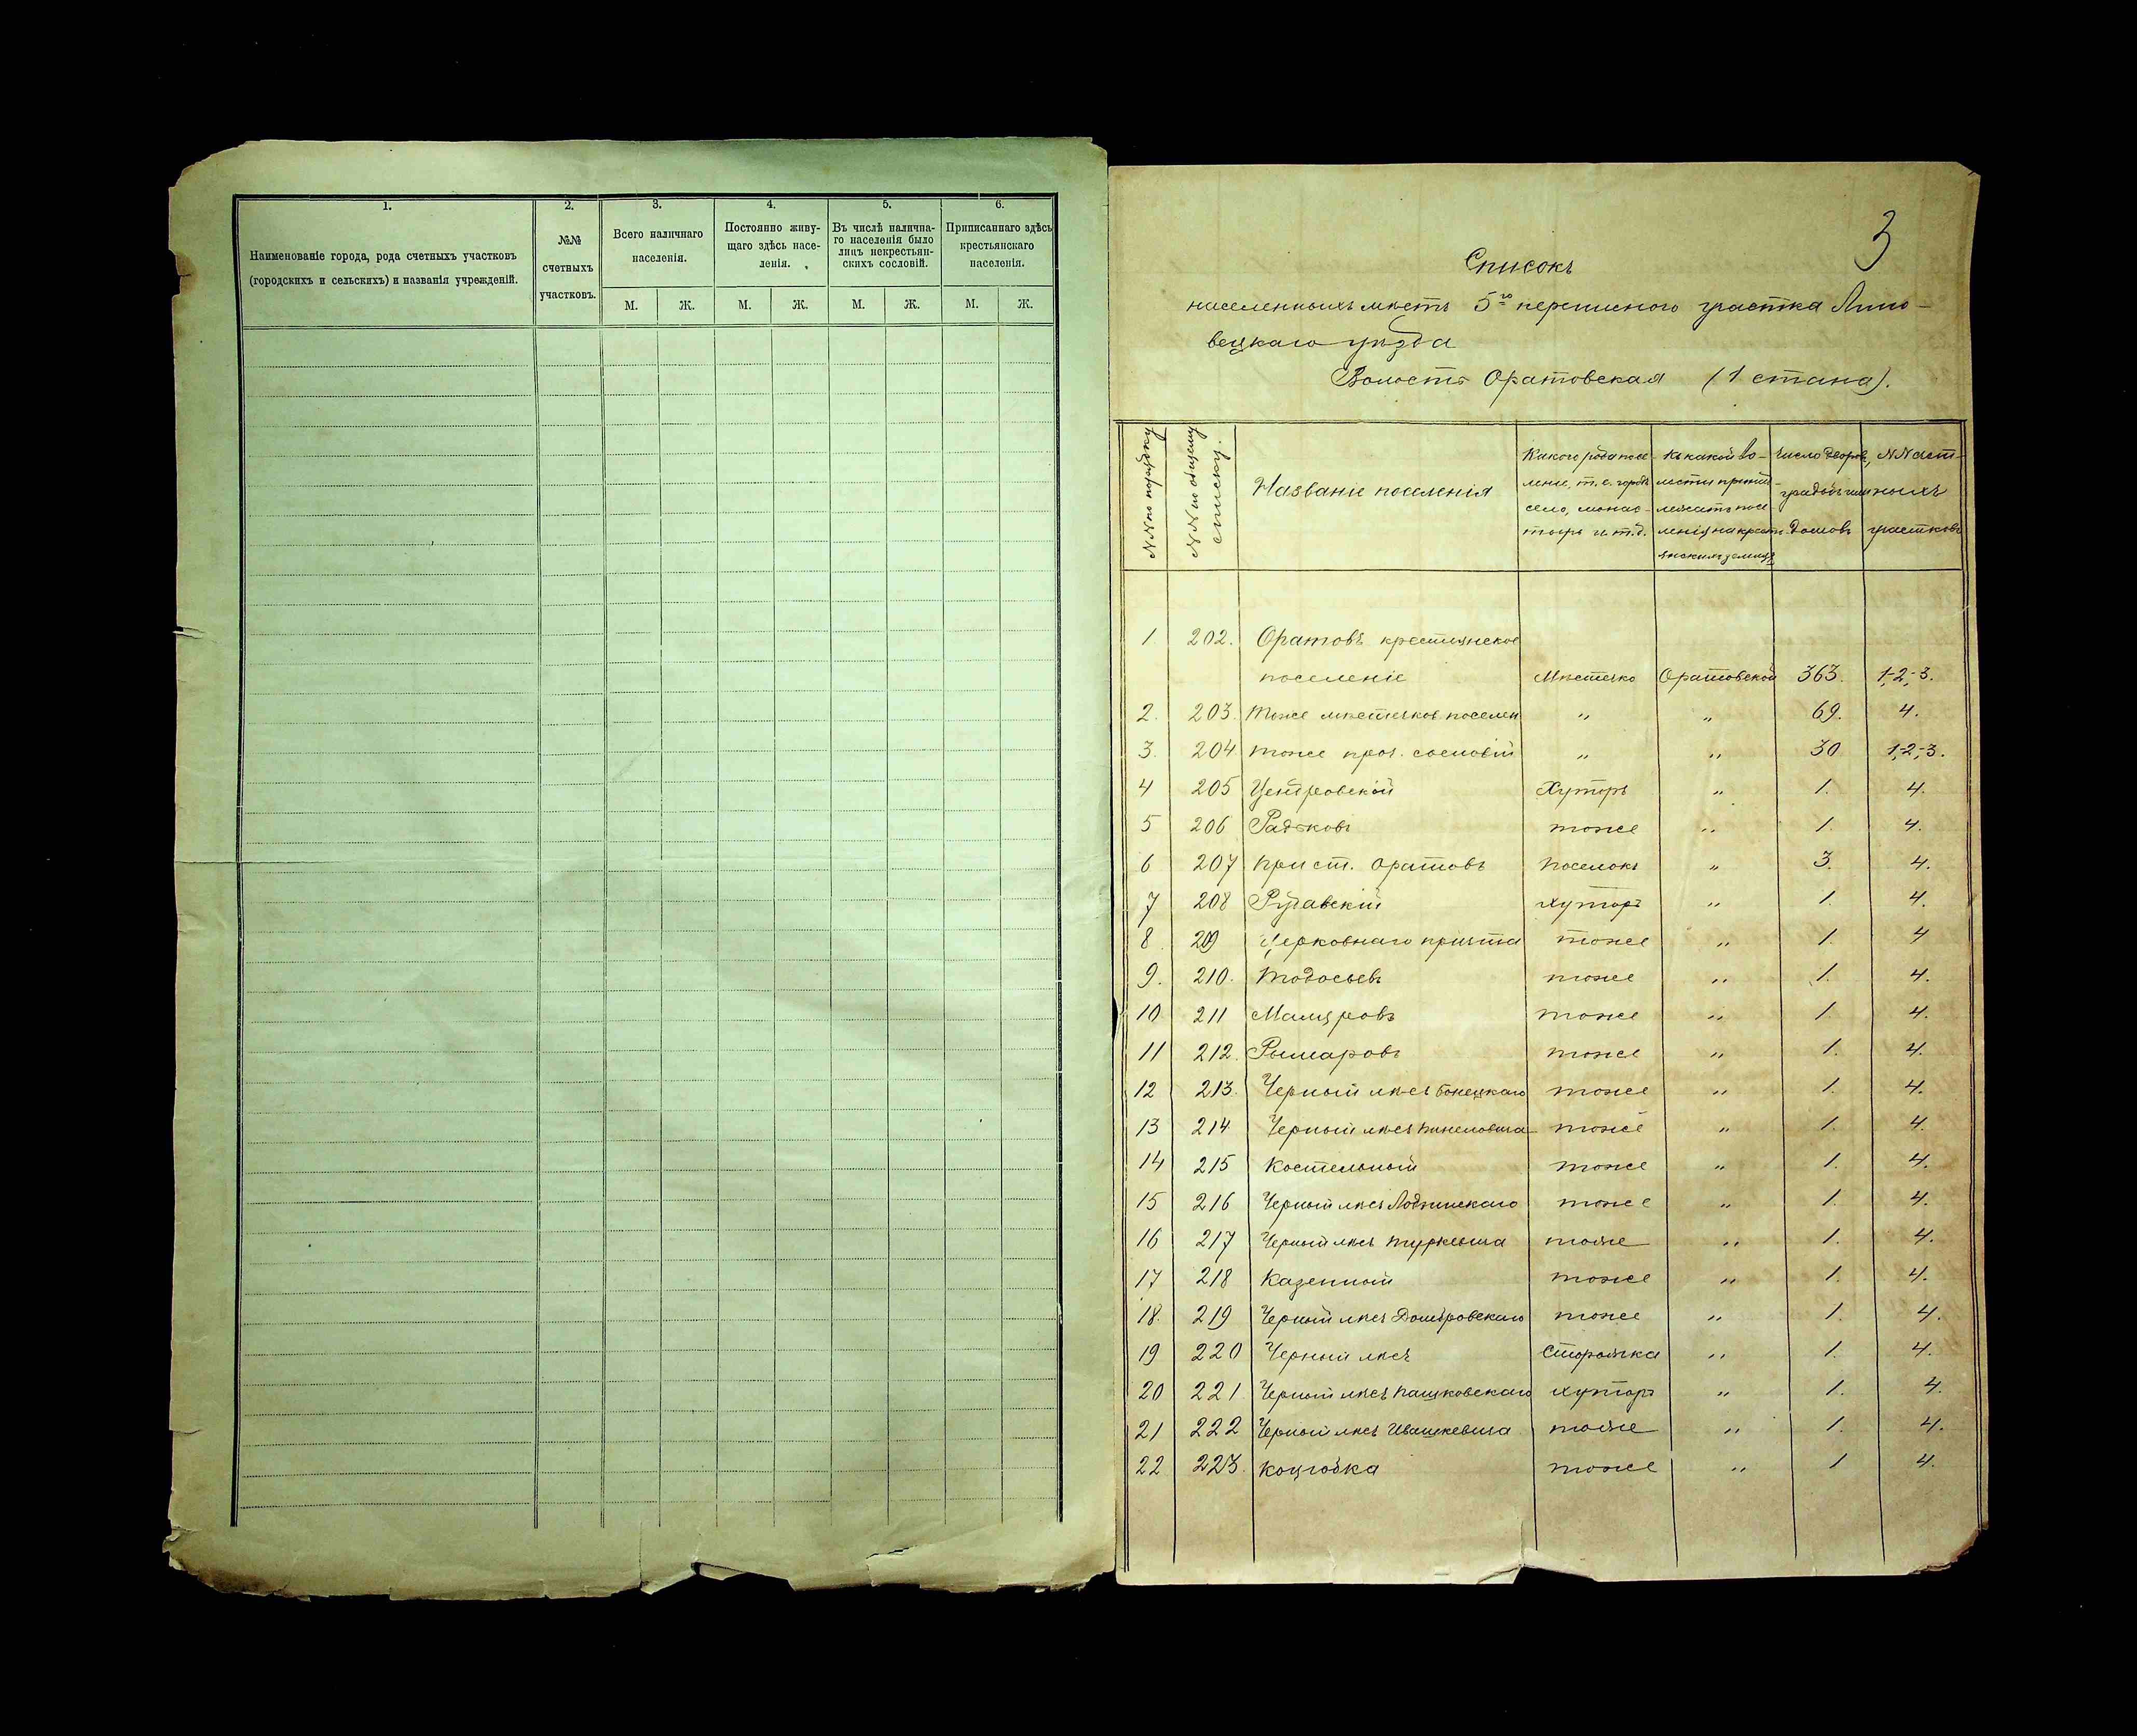 1.
2.
3.
4.
5.
6.
Наименованіе города, рода счетныхъ участковъ
(городскихъ и сельскихъ) и названія учрежденій.
№№
счетныхъ
участковъ.
Всего наличнаго
населенія.
Постоянно живу-
щаго здѣсь насе-
ленія.
Въ числѣ налична-
го населенія было
лицъ некрестьян-
скихъ сословій.
Приписаннаго здѣсь
крестьянскаго
населенія.
М. Ж. М. Ж. М. Ж. М. Ж.
3
Списокъ
населенныхъ мѣстъ 5го переписного участка Липо-
вецкаго уѣзда
Волость Оратовская (1 стана).
NN по порядку
NN по общему
списку.
Названіе поселенія
Какого рода посе-
леніе, т. е. городъ
село, монас-
тырь и т. д.
Къ какой во-
лости принад-
лежатъ посе-
ленія на кресть-
янскихъ земляхъ
Число дворовъ,
усадебъ или
домовъ
NN счет-
ныхъ
участковъ
1 202. Оратовъ крестьянское
поселеніе Мѣстечко Оратовской 363. 1,-2,-3.
2. 203. тоже мѣстечков. поселен „ „ 69. 4.
3. 204 тоже проч. сословій „ „ 30 1,-2,-3.
4 205 Центровской Хуторъ „ 1. 4.
5 206 Радьковъ тоже „ 1. 4.
6 207 При ст. Оратовъ Поселокъ „ 3. 4.
7 208 хуторъ „ 1. 4.
8 209 Церковнаго причта тоже „ 1. 4
9. 210. Тодосьевъ тоже „ 1. 4.
10 211 Маляровъ тоже „ 1. 4.
11 212. Рымаровъ тоже „ 1. 4.
12 213. Черный лѣсъ Бонецкаго тоже „ 1. 4.
13 214 Черный лѣсъ тоже „ 1. 4.
14 215 Костельный тоже „ 1. 4.
15 216 Черный лѣсъ тоже „ 1. 4.
16 217 Черный лѣсъ Туркевича тоже „ 1. 4.
17 218 Казенный тоже „ 1. 4.
18. 219 Черный лѣсъ Домбровскаго тоже „ 1. 4.
19 220 Черный лѣсъ Сторожка „ 1. 4.
20 221 Черный лѣсъ Пашковскаго хуторъ „ 1. 4.
21 222 Черный лѣсъ Ивашкевича тоже „ 1. 4.
22 223. Коцюбка тоже „ 1 4.